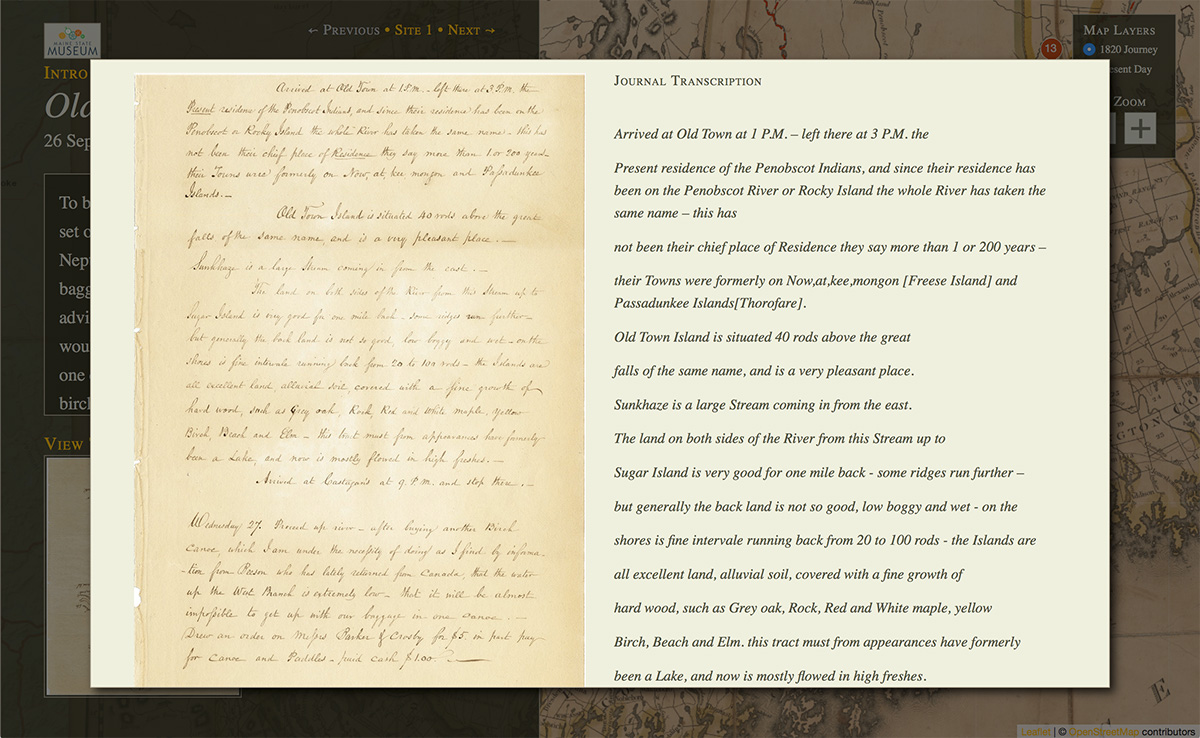 MAINE STATE
MUSEUM
← Previous • Site 1 • Next →
Intro
Old
26 Sep
To b
set o
Nept
bagg
advi
wou
one
birch
View
Arrived at Old Town at 1 P.M. – left there at 3 P.M. the
Present residence of the Penobscot Indians, and since their residence has been on the
Penobscot or Rocky Island the whole River has taken the same name – this has
not been their chief place of Residence they say more than 1 or 200 years
their Towns were formerly on Now,at,kee mongon and Passadunkee
Islands. –
Old Town Island is situated 40 rods above the great
falls of the same name, and is a very pleasant place. –
Sunkhaze is a large Stream coming in from the east. –
The land on both sides of the River from this Stream up to
Sugar Island is very good for one mile back – some ridges run further –
but generally the back land is not so good, low boggy and wet – on the
shores is fine intervale running back from 20 to 100 rods – the Islands are
all excellent land, alluvial soil covered with a fine growth of
hard wood, such as Grey oak, Rock, Red and White maple, yellow
Birch, Beach and Elm – this tract must from appearances have formerly
been a Lake, and now is mostly flowed in high freshes. –
Arrived at Costigan's at 9. P.M. and stop there. –
Wednesday 27. Proceed up river – after buying another Birch
Canoe, which I am under the necessity of doing as I find by informa-
-tion from Person who has lately returned from Canada, that the water
up the West Branch is extremely low – that it will be almost
impossible to get up with our baggage in one canoe. –
Drew an order on Messrs Parker & Crosby for $5. in part pay
for Canoe and Paddles – paid cash $1.00
Journal Transcription
Arrived at Old Town at 1 P.M. – left there at 3 P.M. the
Present residence of the Penobscot Indians, and since their residence has
been on the Penobscot River or Rocky Island the whole River has taken the
same name – this has
not been their chief place of Residence they say more than 1 or 200 years –
their Towns were formerly on Now,at,kee,mongon [Freese Island] and
Passadunkee Islands[Thorofare].
Old Town Island is situated 40 rods above the great
falls of the same name, and is a very pleasant place.
Sunkhaze is a large Stream coming in from the east.
The land on both sides of the River from this Stream up to
Sugar Island is very good for one mile back - some ridges run further –
but generally the back land is not so good, low boggy and wet - on the
shores is fine intervale running back from 20 to 100 rods - the Islands are
all excellent land, alluvial soil, covered with a fine growth of
hard wood, such as Grey oak, Rock, Red and White maple, yellow
Birch, Beach and Elm. this tract must from appearances have formerly
been a Lake, and now is mostly flowed in high freshes.
13
Map Layers
1820 Journey
esent Day
Zoom
+
E
Leaflet | © OpenStreetMap contributors